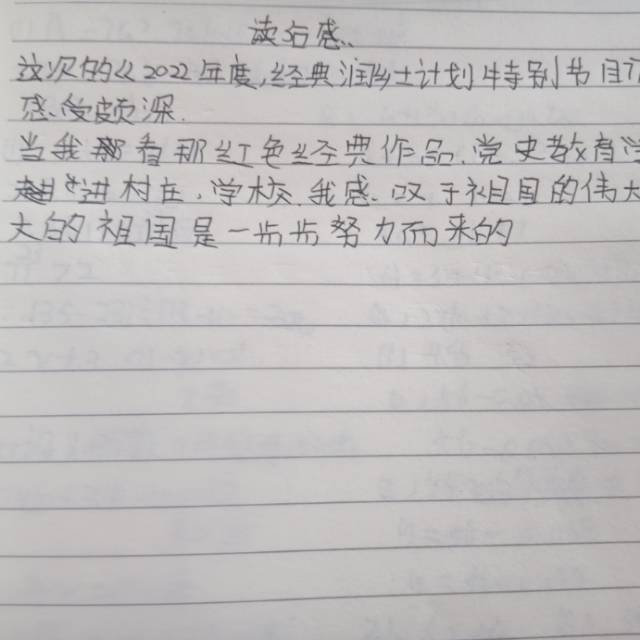 读后感、
这次的《2022年度,经典润乡土计划特别节目
感受颇深.
当我看那红色经典作品、党史教育
进村庄、学校、我感、叹于祖国的伟大
大的祖国是一步步努力而来的